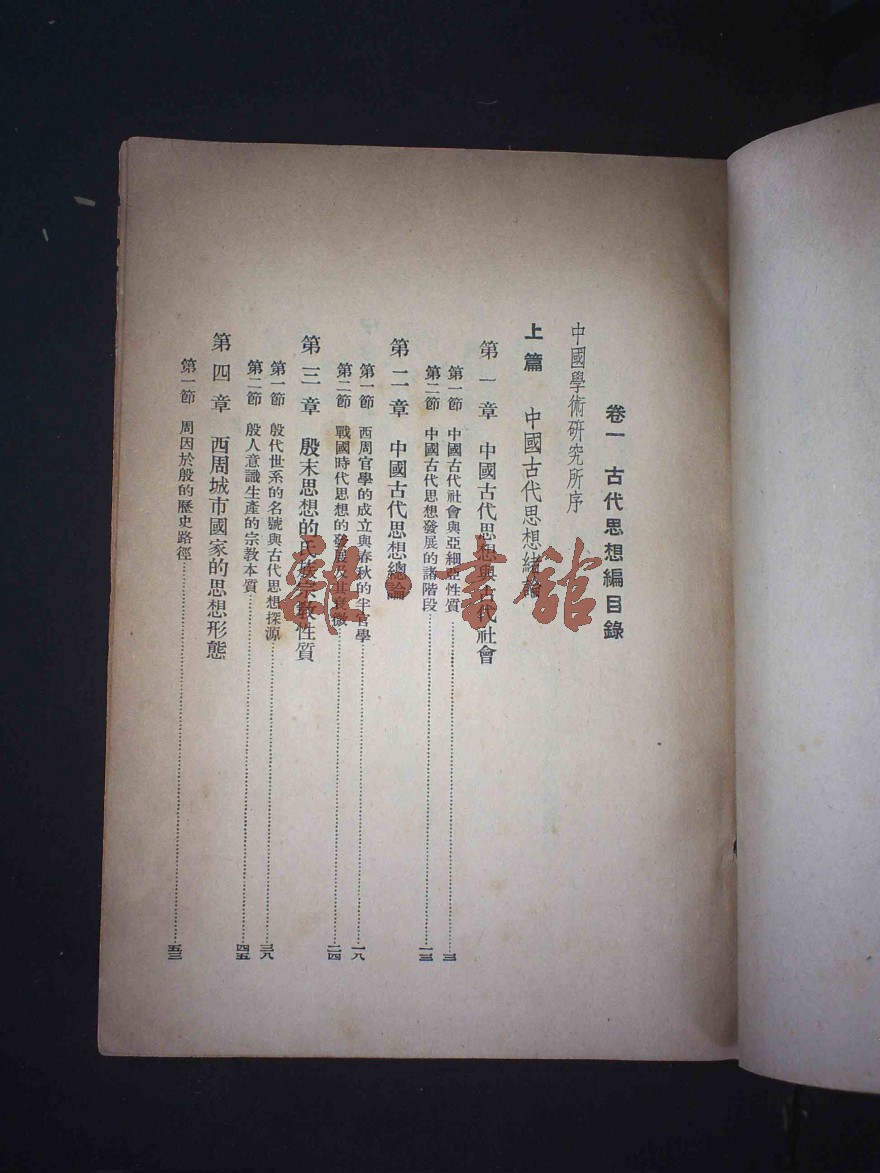 卷一 古代思想編目錄
中國學術研究所序
上篇 中國古代思想緒論
第一章 中國古代思想與古代社會
第一節 中國古代社會與亞細亞性質……三
第二節 中國古代思想發展的諸階段……一三
第二章 中國古代思想總論
第一節 西周官學的成立與春秋的半官學……一八
第二節 戰國時代思想的發展及其衰微……二四
第三章 殷末思想的氏族宗教性質
第一節 殷代世系的名號與古代思想探源……三八
第二節 殷人意識生產的宗教本質……四五
第四章 西周城市國家的思想形態
第一節 周因於殷的歷史路徑……五三
雜·書館